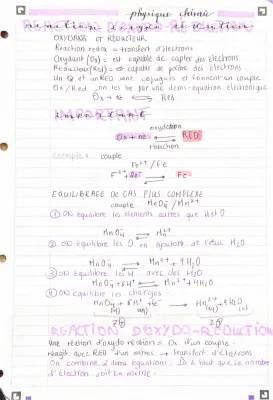 physique chimie
OXYDANT ET RÉDUCTEUR
Réaction redox = transfert d'électrons
Oxydant (Ox) = est capable de capter des électrons
Réducteur (Red) = est capable de perdre des électrons
Un Ox et un RED sont conjugués et forment un couple
Ox/Red on les lie par une demi-équation électronique
Ox + ne⁻ ⇌ Red
IMPORTANT
oxydation
Ox + ne⁻ ⇌ RED
réduction
Exemple : couple
Fe²⁺/Fe
Fe²⁺ + 2e⁻ ⇌ Fe
ÉQUILIBRAGE DE CAS PLUS COMPLEXE
couple MnO₄⁻/Mn²⁺
① On équilibre les éléments autres que H et O
MnO₄⁻ → Mn²⁺
② On équilibre les O en ajoutant de l'eau H₂O
MnO₄⁻ → Mn²⁺ + 4H₂O
③ On équilibre les H avec des H⁺
MnO₄⁻ + 8H⁺ → Mn²⁺ + 4H₂O
④ On équilibre les charges
MnO₄⁻ + 8H⁺ + 5e⁻ → Mn²⁺ + 4H₂O
RÉACTION D'OXYDO-RÉDUCTION
Une réaction d'oxydo réduction = Ox d'un couple
réagit avec RED d'un autre → transfert d'électrons
On combine 2 demi équations. Il faut que le nombre
d'électron soit le même.